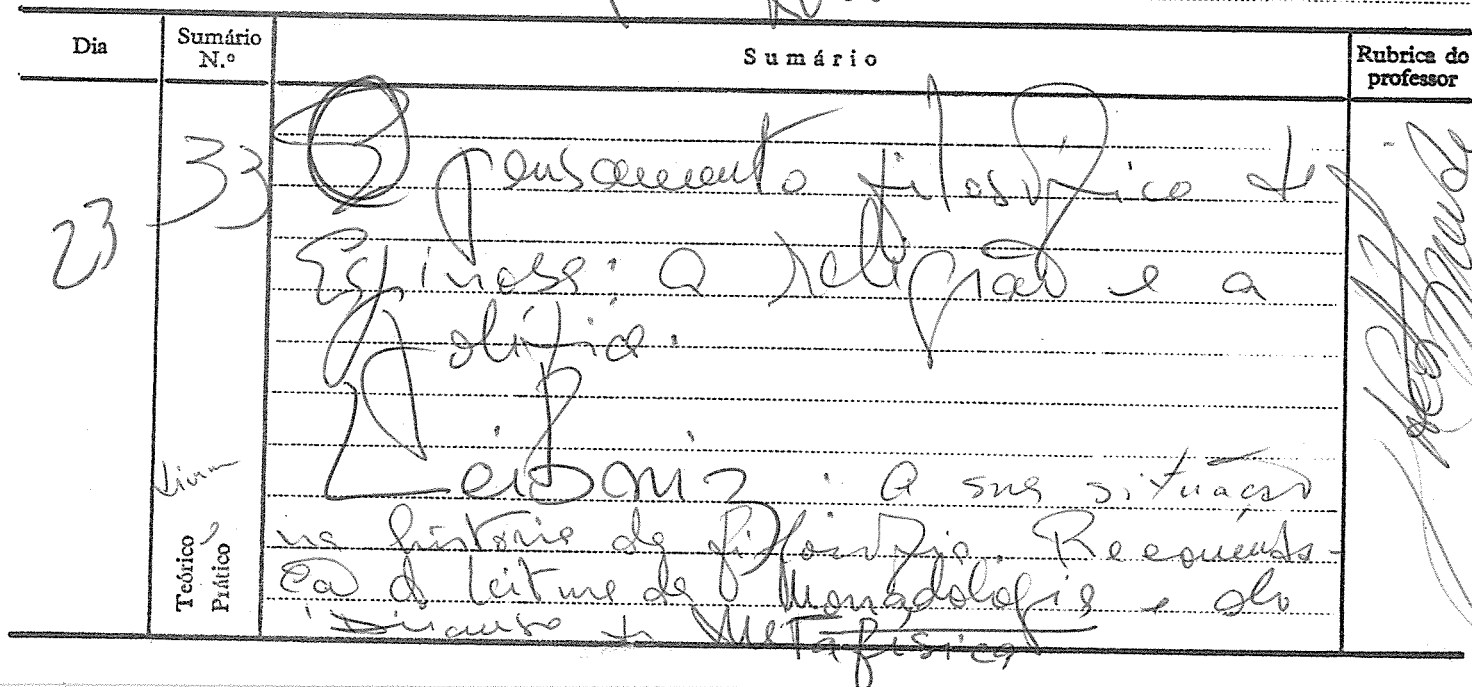 Dia Sumário N.º Sumário Rubrica do professor
23 33 O pensamento filosófico de
Espinosa: a religião e a
política.
Leibniz: a sua situação
na história da filosofia. Recomenda-
ção da leitura da Monadologia e do
Discurso de Metafísica
Teórico
Prático